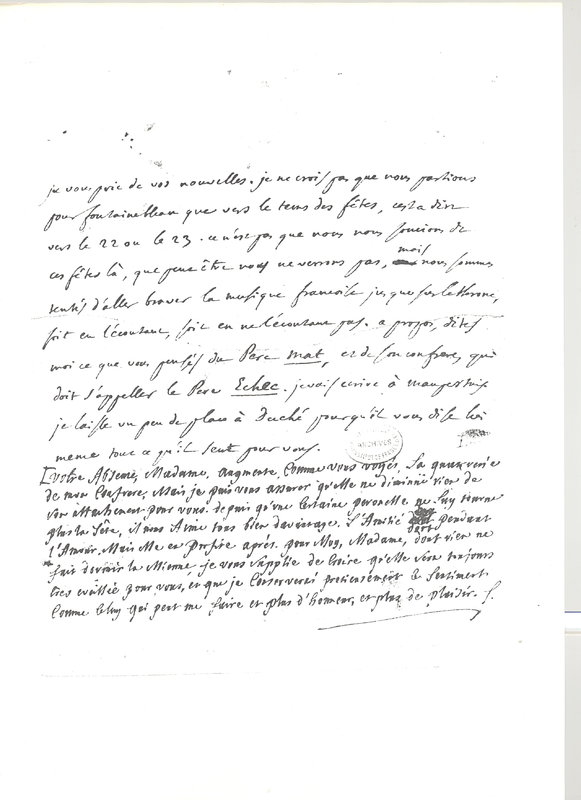 je vous prie de vos nouvelles. je ne crois pas que nous partions
pour fontainebleau que vers le tems des fêtes, cest a dire
vers le 22 ou le 23. ce n'est pas que nous nous soucions de
ces fêtes là, que peut être nous ne verrons pas, mais nous sommes
tentés d'aller braver la musique francoise jusques sur le throne,
soit en l'écoutant, soit en ne l'écoutant pas. a propos, dites
moi ce que vous pensés du Pere mat, et de son confrere, qui
doit s'appeller le Pere Echec. je vais ecrire à maupertuis
je laisse un peu de place à Duché pour qu'il vous dise lui
meme tout ce qu'il sent pour vous.
Votre Absence, Madame, augmente, Comme vous voyés, la
de mon Confrere, Mais je puis vous assurer qu'elle ne diminüe rien de
son attachement pour vous. depuis qu'une Certaine peronelle ne luy tourne
plus la tête, il nous Aime tous bien davantage. L'Amitié dort pendant
l'Amour, Mais elle en Profite aprés. pour Moy, Madame, dont rien ne
fait dormir la Mienne, je vous supplie de Croire qu'elle sera toujours
tres eveillée pour vous, et que je Conserverai précieusement le Sentiment
Comme Celuy qui peut me faire et plus d'honneur, et plus de plaisir.